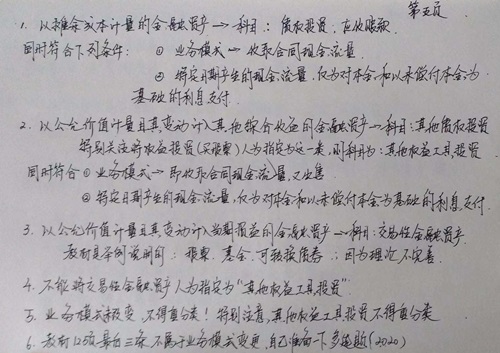 第五页
1. 以摊余成本计量的金融资产→科目：债权投资、应收账款.
同时符合下列条件： ① 业务模式→收取合同现金流量.
② 特定日期产生的现金流量，仅为对本金和以未偿付本金为
基础的利息支付.
2. 以公允价值计量且其变动计入其他综合收益的金融资产→科目：其他债权投资
特别关注将权益投资(买股票)人为指定为这一类，则科目为：其他权益工具投资
同时符合 ① 业务模式→即收取合同现金流量，又出售
② 特定日期产生的现金流量，仅为对本金和以未偿付本金为基础的利息支付.
3. 以公允价值计量且其变动计入当期损益的金融资产→科目：交易性金融资产.
教材具举例说明的：股票、基金、可转换债券：因为理论不完善.
4. 不能将交易性金融资产人为指定为"其他权益工具投资"
5. 业务模式改变，不得重分类！特别注意，其他权益工具投资不得重分类
6. 教材12页最后三条不属于业务模式变更，自己准备一下多选题(2020)